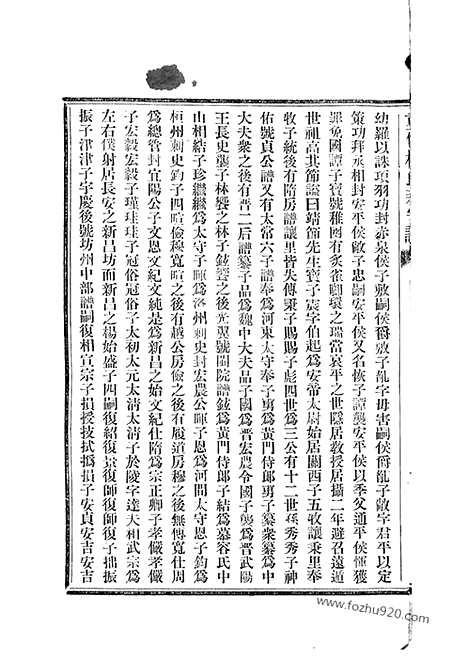 幼羅以誅項羽功封赤泉侯子敷嗣侯爵敷子胤字毋害嗣侯爵胤子敞字君平以定
策功拜丞相封安平侯敞子忠嗣安平侯又名恢子譚襲安平侯以季父通平侯惲獲
罪免國譚子寶號稚圍有炙雀啣環之瑞當哀平之世隱居敎授居攝二年避召遠遁
世祖高其節諡曰靖節先生寶子震字伯起爲安帝太尉始居關西子五牧讓秉里奉
牧子統後有隋房譜讓里皆失傳秉子賜賜子彪四世爲三公有十二世孫秀秀子神
佑號貞公譜又有太常六子譜奉爲河東太守奉子勇爲黃門侍郎勇子纂衆纂爲中
大夫衆之後有晉二后譜纂子品爲魏中大夫品子國爲晉宏農令國子襲爲晉武陽
王長史襲子林襲之林子鉉襲之後光翼號閩院譜鉉爲黃門侍郎子結爲慕容氏中
山相結子珍繼繼爲太守子暉爲洛州刺史封宏農公暉子恩爲河間太守恩子鈞爲
桓州刺史鈞子四暄儉穆寬暄之後有越公房儉之後有履道房穆之後無傳寬仕周
爲總管封宜陽公子文恩文紀文純是爲新昌之始文紀仕隋爲宗正卿子孝儼孝儼
子宏毅宏毅子瑾珪珪子冠俗冠俗子太初太元太清太清子於陵字達天相武宗爲
左右僕射居長安之新昌坊而新昌之楊始盛子四嗣復紹復景復師復師復子拙振
振子津津子宇慶後號坊州中部譜嗣復相宣宗子損授技拭撝損子安貞安吉安吉
www.fozhu920.com